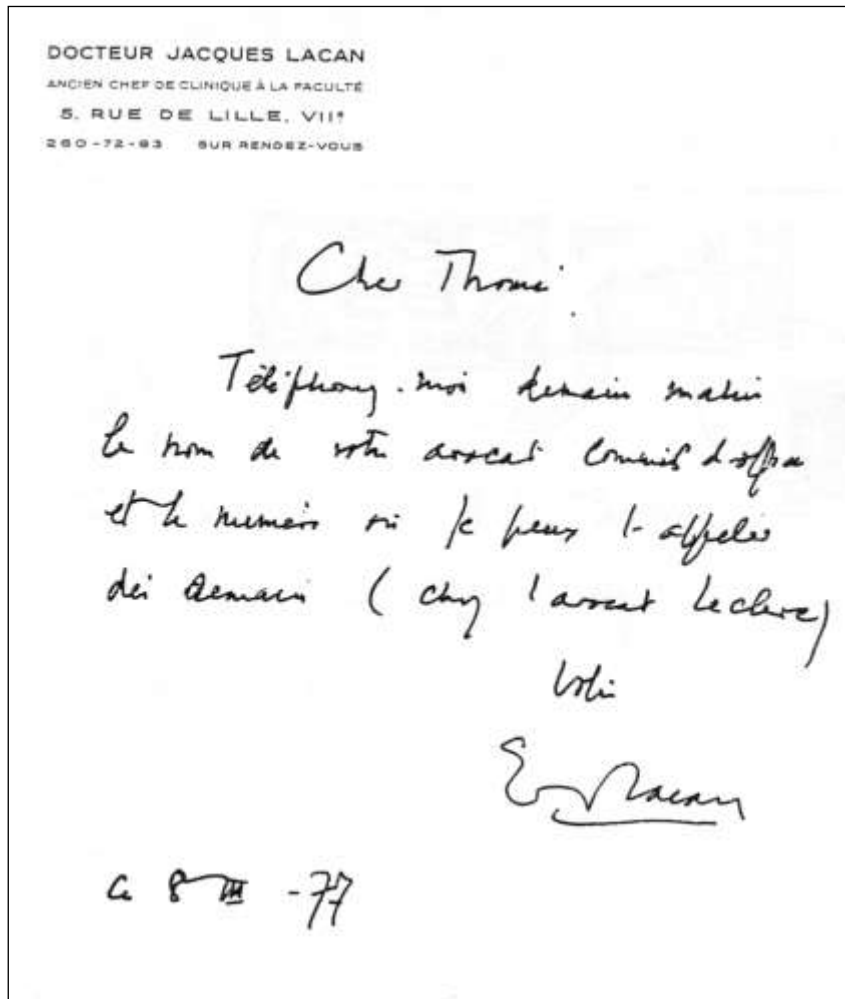 DOCTEUR JACQUES LACAN
ANCIEN CHEF DE CLINIQUE À LA FACULTÉ
5, RUE DE LILLE, VIIe
260-72-93 SUR RENDEZ-VOUS
Cher Thomé
Téléphonez-moi demain matin
le nom de votre avocat commis d'office
et le numéro où je peux l'appeler
dès demain (chez l'avocat Leclerc)
Votre
Lacan
Ce 8 III -77